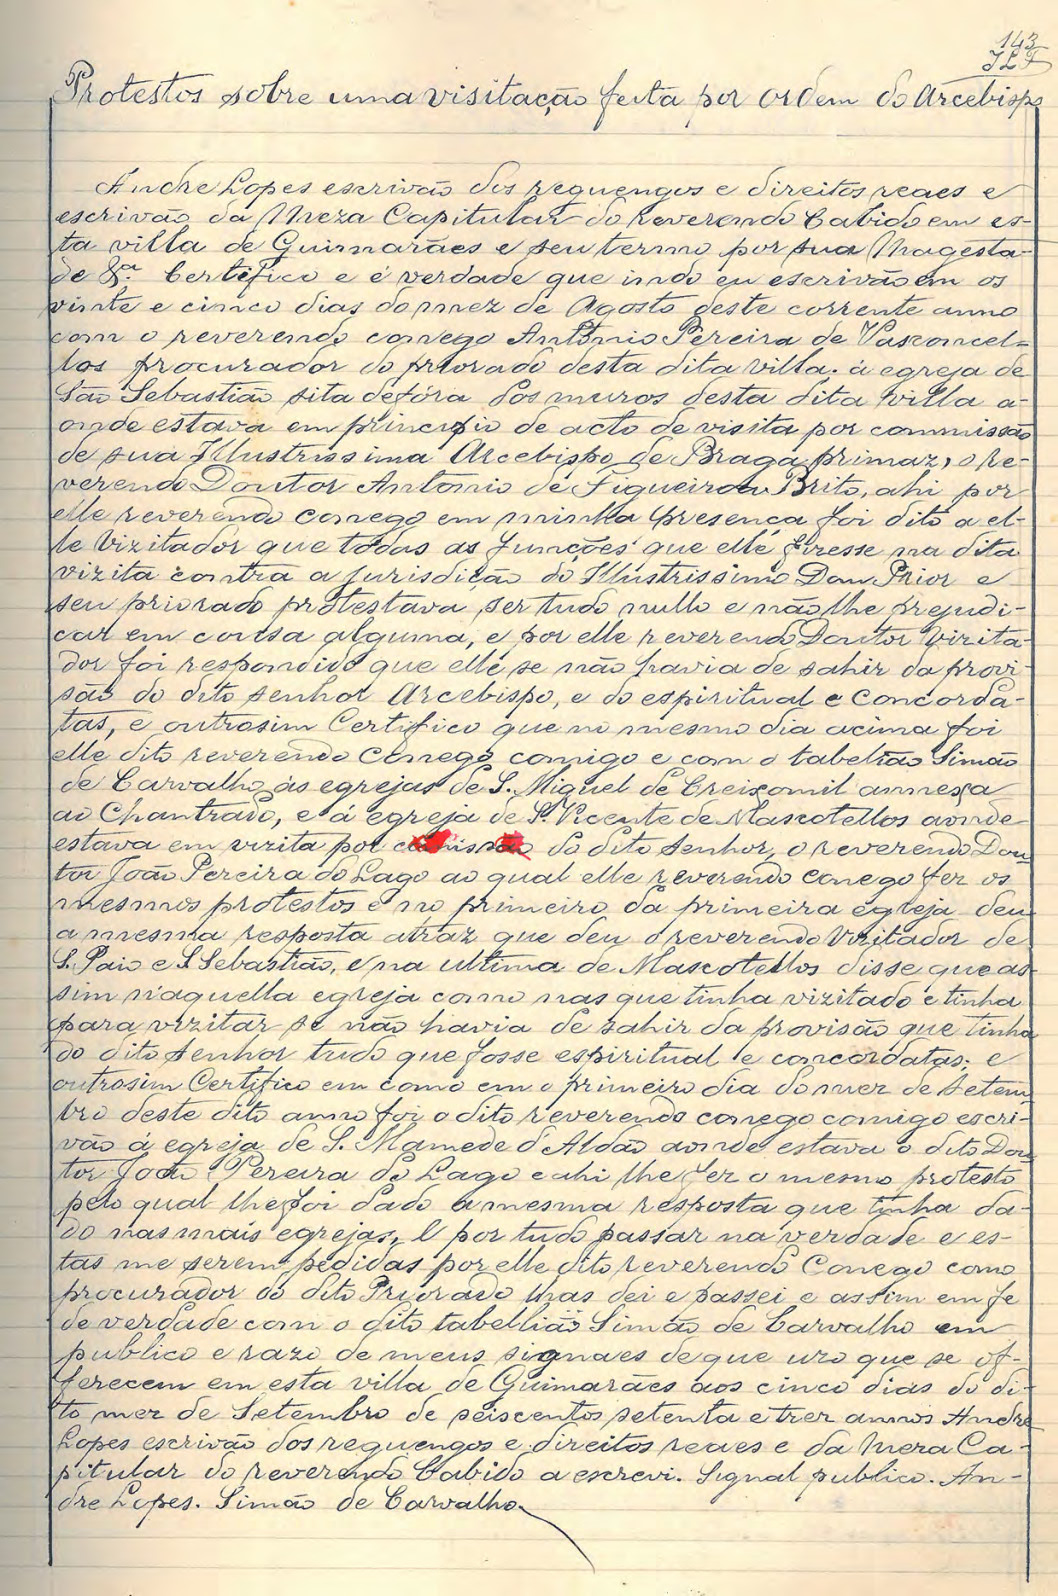 143
Protestos sobre uma visitação feita por ordem do Arcebispo
Andre Lopes escrivão dos reguengos e direitos reaes e
escrivão da Meza Capitular do Reverendo Cabido em es-
ta villa de Guimarães e seu termo por sua Magesta-
de &.ª Certifico e é verdade que indo eu escrivão em os
vinte e cinco dias do mez de Agosto deste corrente anno
com o reverendo conego Antonio Pereira de Vasconcel-
los procurador do priorado desta dita villa. á egreja de
São Sebastião sita defóra dos muros desta dita villa a-
onde estava em principio de acto de visita por commissão
de sua Illustrissima Arcebispo de Braga primaz, o Re-
verendo Doutor Antonio de Figueiroa Brito, ahi por
elle reverendo conego em minha presença foi dito a el-
le Vizitador que todas as funcções que elle fizesse na dita
vizita contra a jurisdição do Illustrissimo Dom Prior e
seu priorado protestava ser tudo nullo e não lhe prejudi-
car em cousa alguma, e por elle reverendo Doutor Vizita-
dor foi respondido que elle se não havia de sahir da provi-
são do dito senhor Arcebispo, e do espiritual e Concorda-
tas, e outrosim Certifico que no mesmo dia acima foi
elle dito reverendo Conego comigo e com o tabelião Simão
de Carvalho ás egrejas de S. Miguel de Creixomil annexa
ao Chantrado, e á egreja de S. Vicente de Mascotellos aonde
estava em vizita por do dito Senhor, o reverendo Dou
tor João Pereira do Lago ao qual elle reverendo conego fez os
mesmos protestos e no primeiro da primeira egreja deu
a mesma resposta atraz que deu o reverendo Vizitador de
S. Paio e S. Sebastião, e na ultima de Mascotellos disse que as
sim n'aquella egreja como nas que tinha vizitado e tinha
para vizitar se não havia de sahir da provisão que tinha
do dito Senhor tudo que fosse espiritual e concordatas; e
outrosim Certifico em como em o primeiro dia do mez de Setem
bro deste dito anno foi o dito reverendo conego comigo escri-
vão á egreja de S. Mamede d'Aldão aonde estava o dito Dou
tor João Pereira do Lago e ahi lhe fez o mesmo protesto
pelo qual lhe foi dado a mesma resposta que tinha da-
do nas mais egrejas, E por tudo passar na verdade e es-
tas me serem pedidas por elle dito reverendo Conego como
procurador do dito Priorado lhas dei e passei e assim em fe
de verdade com o dito tabellião Simão de Carvalho em
publico e razo de meus signaes de que uzo que se of-
ferecem em esta villa de Guimarães aos cinco dias do di-
to mez de Setembro de seiscentos setenta e trez annos Andre
Lopes escrivão dos reguengos e direitos reaes e da Meza Ca-
pitular do reverendo Cabido a escrevi. Signal publico. An-
dre Lopes. Simão de Carvalho